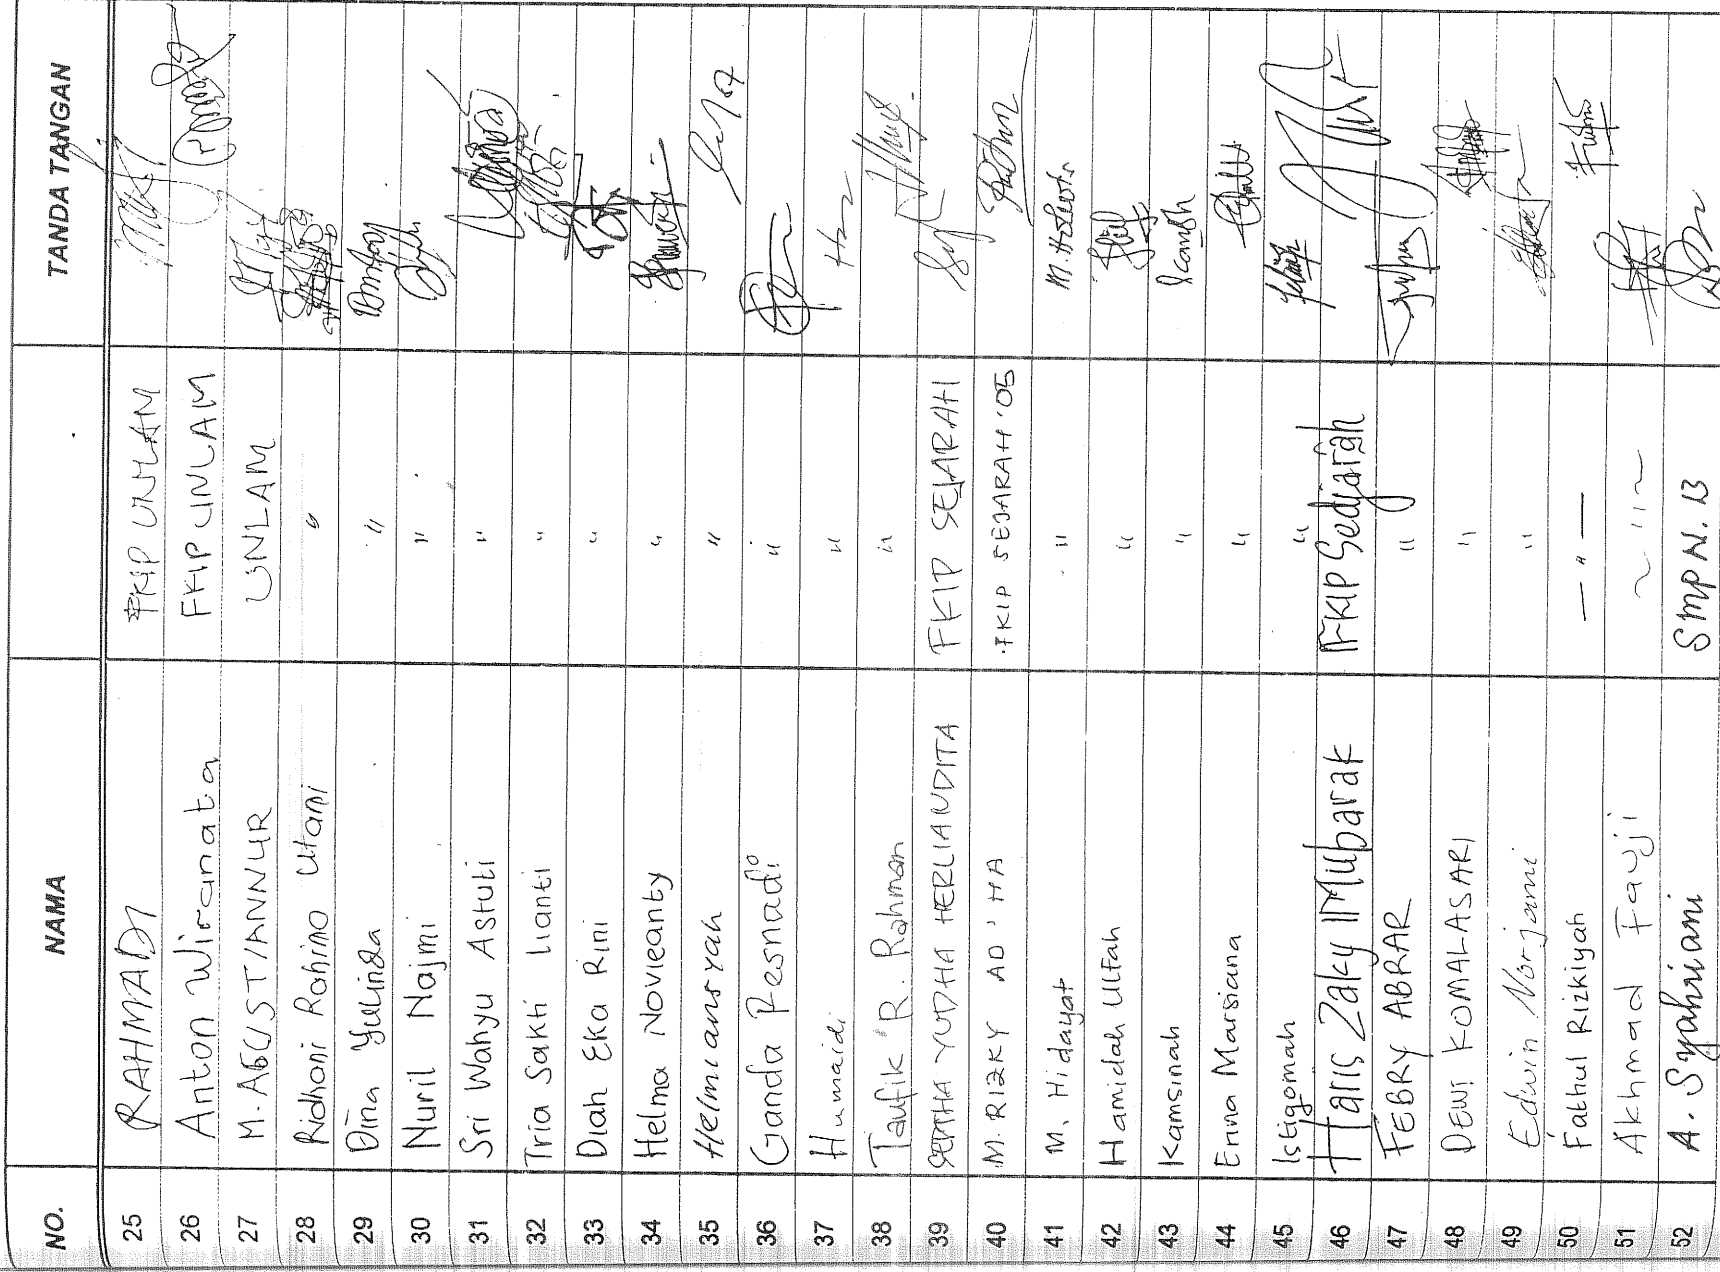 NO. NAMA TANDA TANGAN
25 RAHMADI FKIP UNLAM
26 Anton Wiranata FKIP UNLAM
27 M. AGUSTIANNUR UNLAM
28 Ridhani Rahino Utami "
29 Dina Yulinda "
30 Nuril Najmi "
31 Sri Wahyu Astuti "
32 Tria Sakti Lianti "
33 Diah Eka Rini "
34 Helma Novieanty "
35 Helmiansyah "
36 Ganda Pesnadi "
37 Humaidi "
38 Taufik R. Rahman "
39 YUDHA HERLIANDITA FKIP SEJARAH
40 M. RIZKY AD'HA FKIP SEJARAH '05
41 M. Hidayat "
42 Hamidah Ulfah "
43 Kamsinah "
44 Erina Marsiana "
45 Istiqomah "
46 Haris Zaky Mubarak FKIP Sedjarah
47 FEBRY ABRAR "
48 DEWI KOMALASARI "
49 Edwin Norjami "
50 Fathul Rizkiyah — " —
51 Akhmad Fauji ~ " ~
52 A. Syahriani SMP N. 13